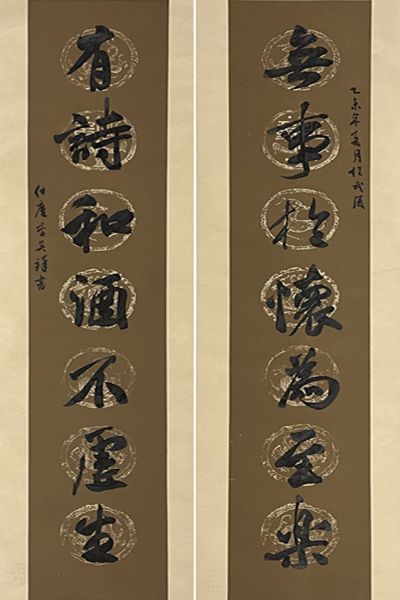 無事於懷為至樂
乙未年夏月於武漢
有詩和酒不虛生
書